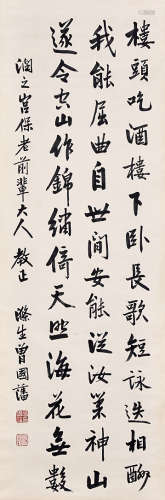 樓頭吃酒樓下臥長歌短詠迭相酬
我能屈曲自世間安能從汝巢神山
遂令空山作錦繡倚天照海花無數
澗之宮保老前輩大人教正
滌生曾國藩